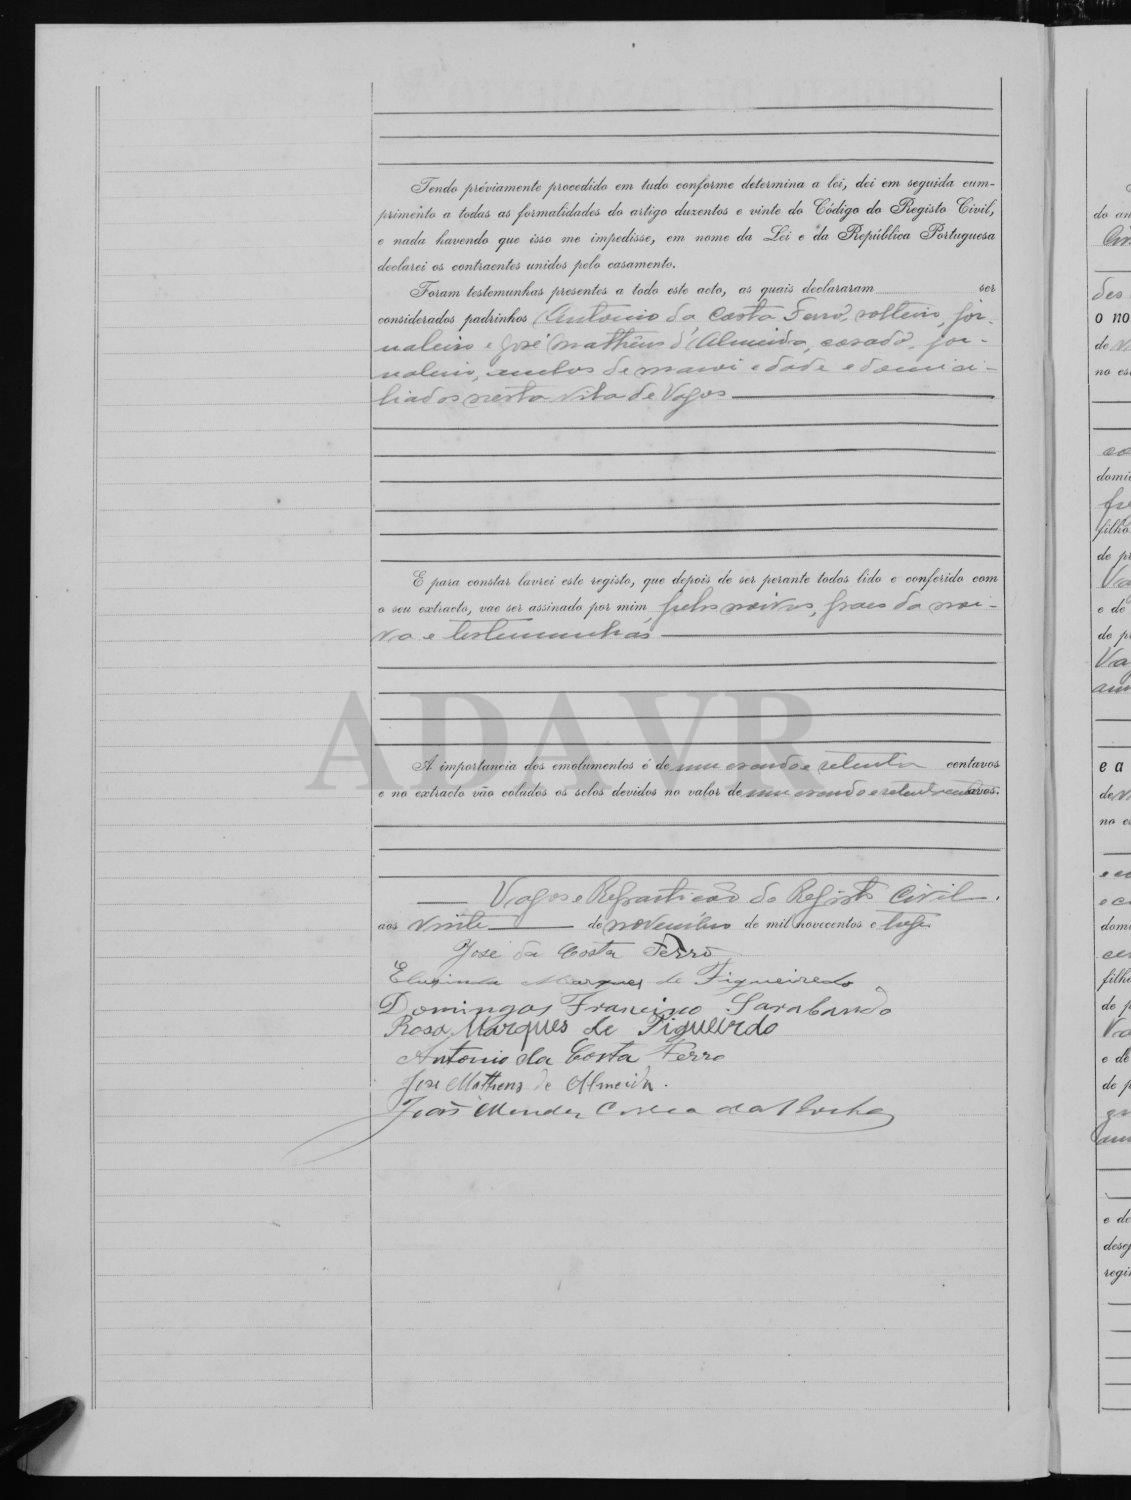 Tendo préviamente procedido em tudo conforme determina a lei, dei em seguida cum-
primento a todas as formalidades do artigo duzentos e vinte do Código do Registo Civil,
e nada havendo que isso me impedisse, em nome da Lei e da República Portuguesa
declarei os contraentes unidos pelo casamento.
Foram testemunhas presentes a todo este acto, as quais declararam ser
considerados padrinhos Antonio da Costa Ferro, solteiro, jor-
naleiro e José Matheus d'Almeida, casado, jor-
naleiro, ambos de maior edade e domici-
liados nesta vila de Vagos
E para constar lavrei este registo, que depois de ser perante todos lido e conferido com
o seu extracto, vae ser assinado por mim, pelos noivos, paes da noi-
va e testemunhas
ADAVR
A importancia dos emolumentos é de um escudo e setenta centavos
e no extracto vão colados os selos devidos no valor de um escudo e setenta centavos.
Vagos e Repartição do Registo Civil.
aos vinte de novembro de mil novecentos e treze
José da Costa Ferro
Marques de Figueiredo
Domingos Francisco Sarabando
Rosa Marques de Figueirdo
Antonio da Costa Ferro
José Matheus de Almeida.
João Mendes Correa da Rocha
do an
des
o no
de
no es
domi
filho
de p
e de
de p
Va
e a
de
na e
dom
filh
de p
e de
de p
e de
dese
regi